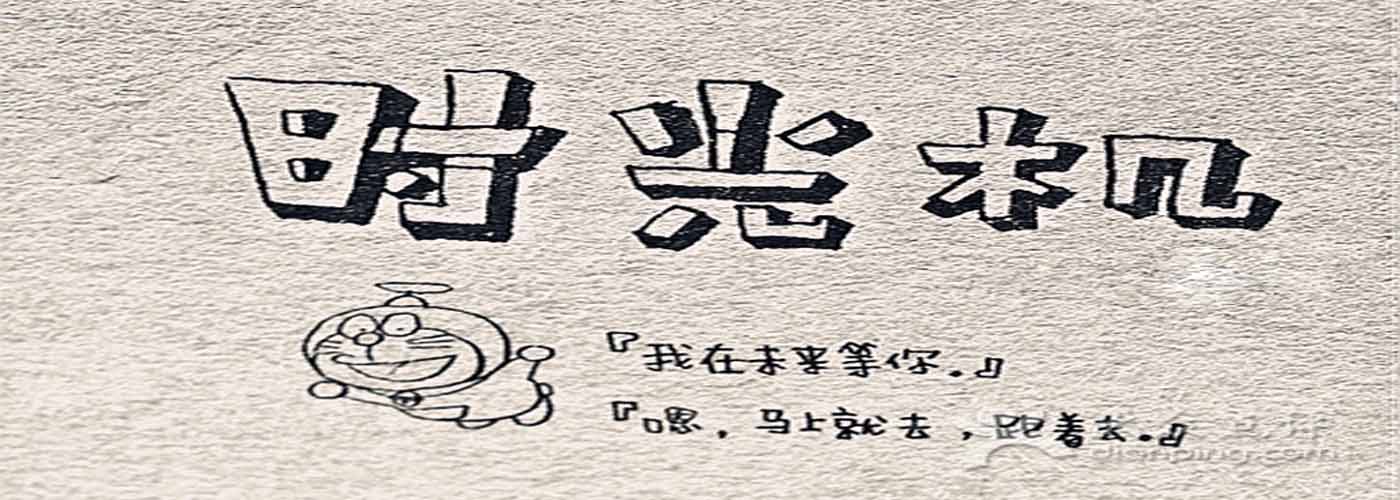 时光机
『我在未来等你.』
『嗯,马上就去,跑着去.』
dianping.com